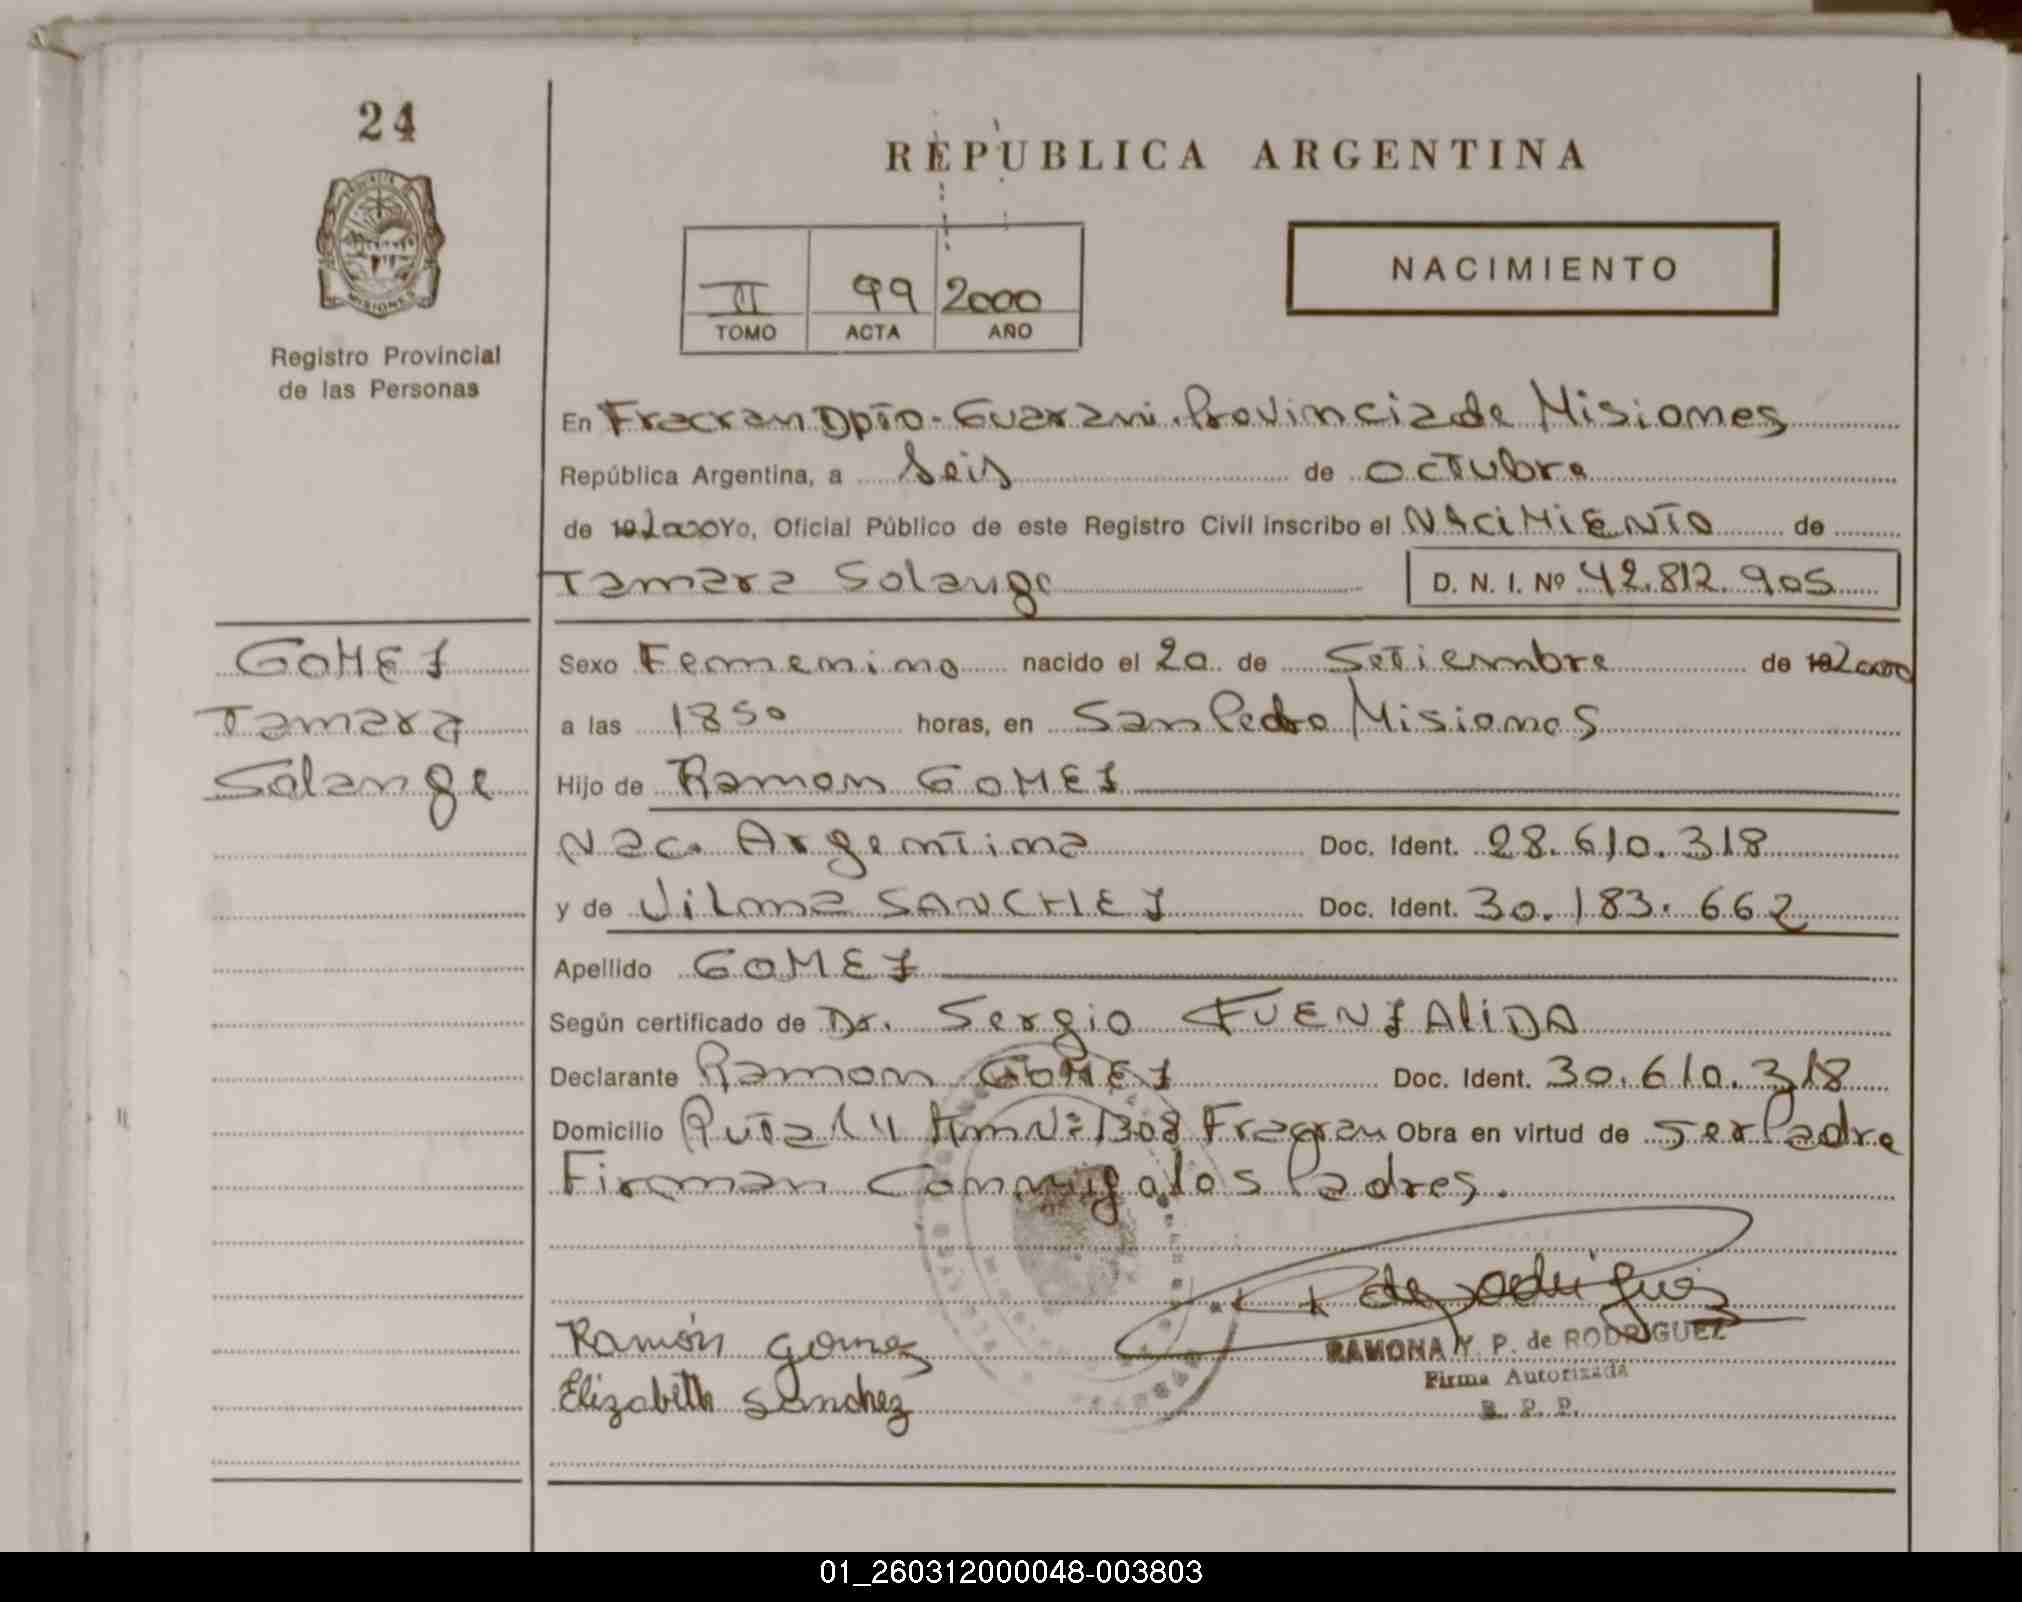 24
REPUBLICA ARGENTINA
MISIONES
Registro Provincial
de las Personas
II 99 2000
TOMO ACTA AÑO
NACIMIENTO
En Fracran Dpto - Guarani. Provincia de Misiones
República Argentina, a Seis de octubre
de 192000 Yo, Oficial Público de este Registro Civil inscribo el NACIMIENTO de
Tamara Solange D. N. I. Nº 42.812.905
GOMEZ
Tamara
Solange
Sexo Femenino nacido el 20 de Setiembre de 192000
a las 1850 horas, en San Pedro Misiones
Hijo de Ramon GOMEZ
Nac. Argentina Doc. Ident. 28.610.318
y de Vilma SANCHEZ Doc. Ident. 30.183.662
Apellido GOMEZ
Según certificado de Dr. Sergio FUENZALIDA
Declarante Ramon GOMEZ Doc. Ident. 30.610.318
Domicilio Ruta 14 Km Nº 1308 Fragran Obra en virtud de ser Padre
Firman conmigo los Padres.
R de Rodriguez
Ramón gomez
RAMONA Y. P. de RODRIGUEZ
Firma Autorizada
R. P. P.
Elizabeth Sanchez
01_260312000048-003803